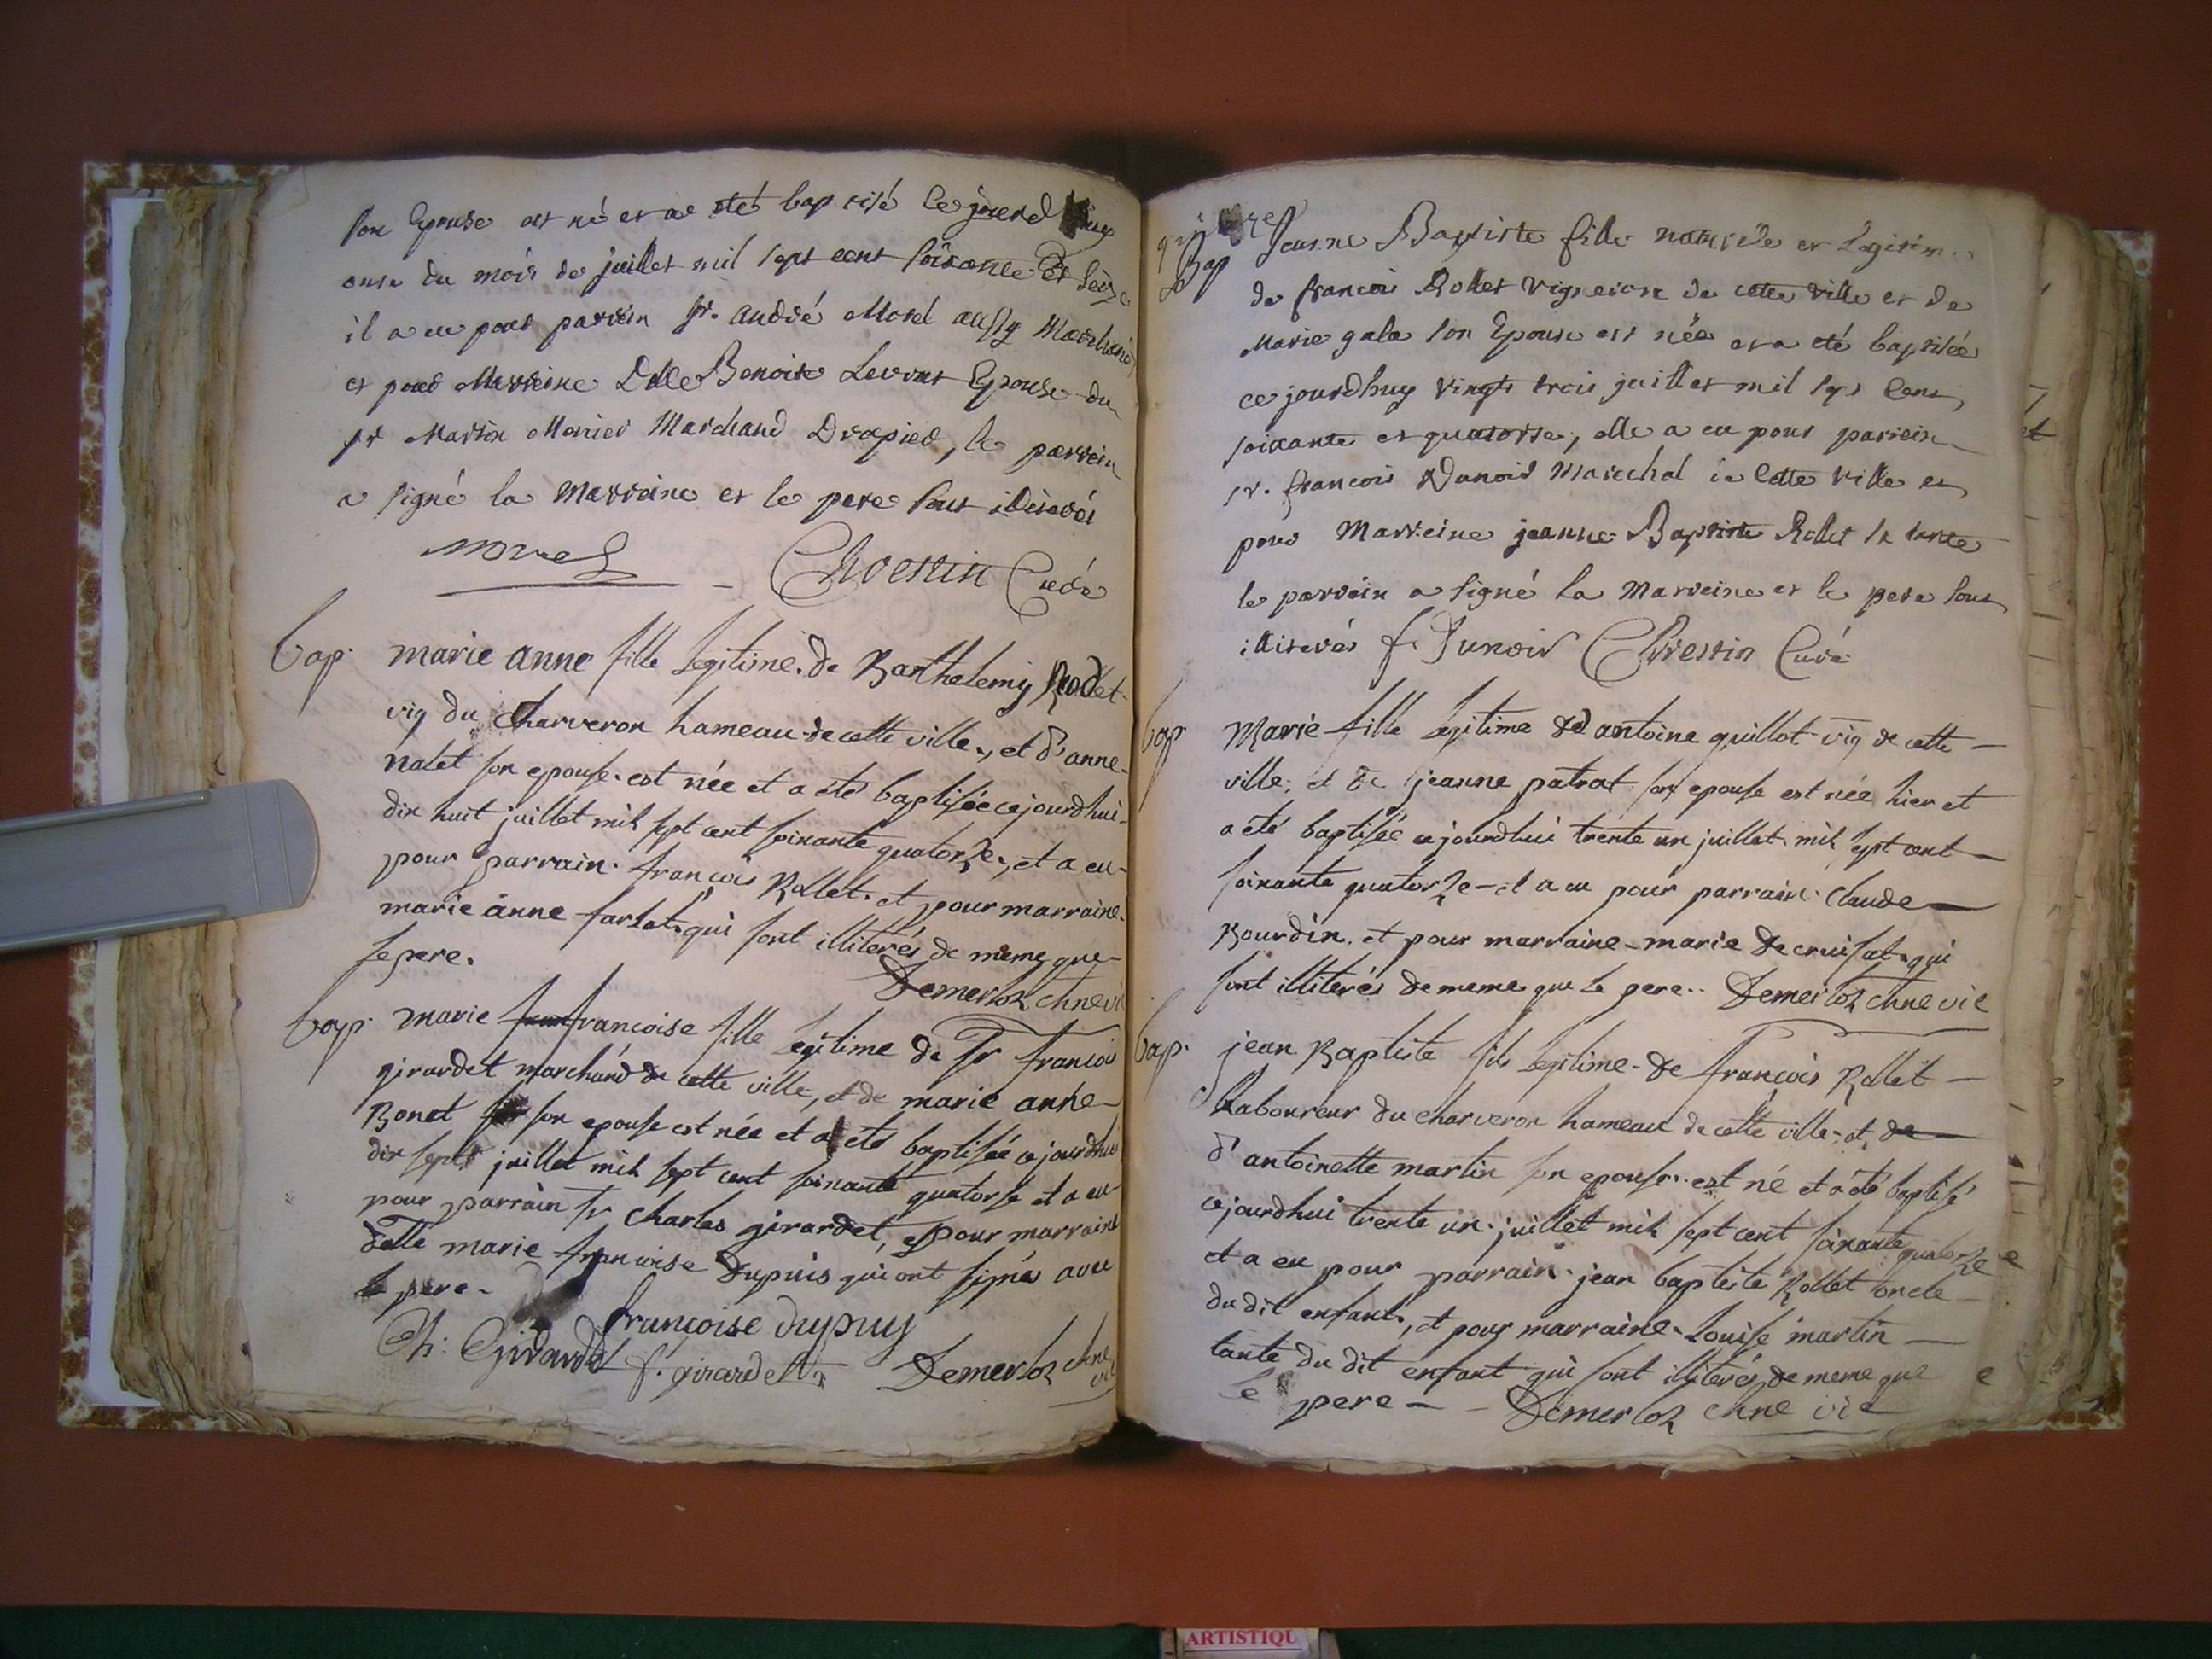 son Epouse est né et a eté baptisé ce jourd
onse du mois de juillet mil sept cent soixante et seize
il a eu pour parrein sr. andré Morel aussy Marchand
et pour Marreine Dlle Benoite Levrat Epouse du
sr Martin Monier Marchand Drapier, le parrein
a signé la Marreine et le pere sont illiterés
morel Chrestin Curé
bap. marie anne fille legitime de Barthelemy Rodet
vig du Charveron hameau de cette ville, et d'anne
natet son epouse est née et a été baptisée cejourdhui
dix huit juillet mil sept cent soixante quatorze, et a eu
pour parrain françois Rollet et pour marraine
marie anne farlat qui sont illiterés de meme que
le pere.
Demerloz chne vic
bap. marie francoise fille legitime de sr francois
girardet marchand de cette ville, et de marie anne
Bonet son epouse est née et a été baptisée cejourdhui
dix sept juillet mil sept cent soixante quatorse et a eu
pour parrain sr charles girardet, et pour marraine
delle marie francoise Dupuis qui ont signés avec
le pere.
françoise dupuy
Ch. Girardet f. girardet Demerloz chne vic
Bap Jeanne Baptiste fille naturelle et Legitime
de francois Rollet vigneron de cette ville et de
Marie gala son Epouse est née et a eté baptisée
ce jourdhuy vingt trois juillet mil sept cent
soixante et quatorse, elle a eu pour parrein
sr. francois Dunoir Marechal de cette ville et
pour Marreine jeanne Baptiste Rollet sa tante
le parrein a signé la Marreine et le pere sont
illiterés f. Dunoir Chrestin Curé
bap. Marie fille legitime d antoine guillot vig de cette
ville, et de jeanne patrat son epouse est née hier et
a été baptisée cejourdhui trente un juillet mil sept cent
soixante quatorze et a eu pour parrain claude
Bourdin et pour marraine marie decruisat qui
sont illiterés de meme que le pere. Demerloz chne vic
bap. jean Baptiste fils legitime de françois Rollet
laboureur du charveron hameau de cette ville, et de
d'antoinette martin son epouse est né et a été baptisé
cejourdhui trente un juillet mil sept cent soixante quatorze
et a eu pour parrain jean baptiste Rollet oncle
du dit enfant, et pour marraine Louise martin
tante du dit enfant qui sont illiterés de meme que
le pere Demerloz chne vic
ARTISTIQU